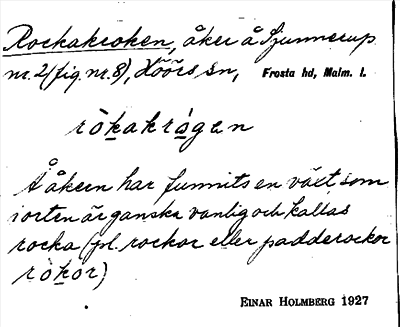 Rockakroken, åker å Sjunnerup
nr. 2 (fig. nr. 8), Höörs sn, Frosta hd, Malm. l.
ròkakrógen
Å åkern har funnits en växt, som
i orten är ganska vanlig och kallas
rocka (pl. rockor eller padderockor
ròkor)
EINAR HOLMBERG 1927